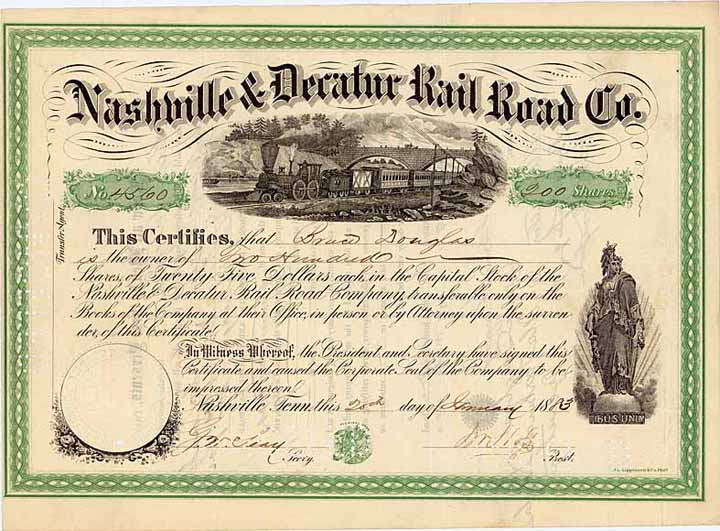 Nashville & Decatur Rail Road Co.
No. 4560
200 Shares
Transfer Agent
This Certifies, that Bruce Douglas
is the owner of Two Hundred
Shares, of Twenty Five Dollars each, in the Capital Stock of the
Nashville & Decatur Rail Road Company, transferable only on the
Books of the Company at their Office, in person or by Attorney upon the surren-
der, of this Certificate.
In Witness Whereof, the President and Secretary have signed this
Certificate, and caused the Corporate Seal of the Company to be
impressed thereon.
Nashville Tenn. this 20th day of January 1883
Secry.
Prest.
IBUS UNUM